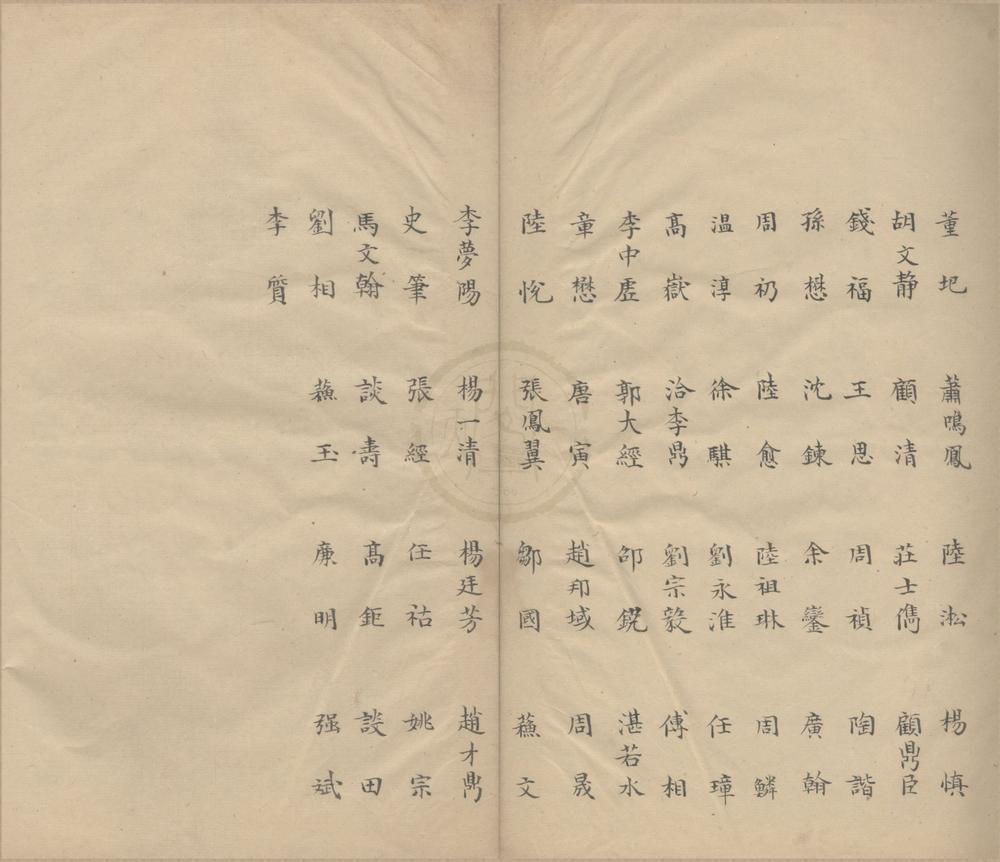 董玘 蕭鳴鳳 陸淞 楊慎
胡文靜 顧清 莊士儁 顧鼎臣
錢福 王思 周禎 陶諧
孫懋 沈鍊 余鑾 廣翰
周礽 陸愈 陸祖琳 周鱗
温淳 徐騏 劉永淮 任璋
髙嶽 洽李鼎 劉宗毅 傅相
李中虗 郭大經 邵銳 湛若水
章懋 唐寅 趙邦域 周晟
陸悅 張鳳翼 鄒國 蘓文
李夢陽 楊一清 楊廷芳 趙才鼎
史筆 張經 任祜 姚宗
馬文翰 談壽 髙鉅 談田
劉相 蘓玉 廉明 强斌
李質